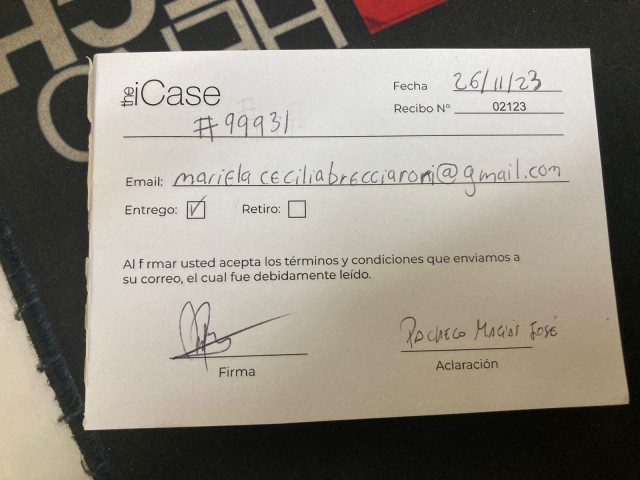 the iCase
Fecha 26/11/23
Recibo Nº 02123
#99931
Email: mariela cecilia brecciaroni@gmail.com
Entrego: ☑ Retiro: ☐
Al f rmar usted acepta los términos y condiciones que enviamos a
su correo, el cual fue debidamente leído.
Pacheco José
Firma
Aclaración